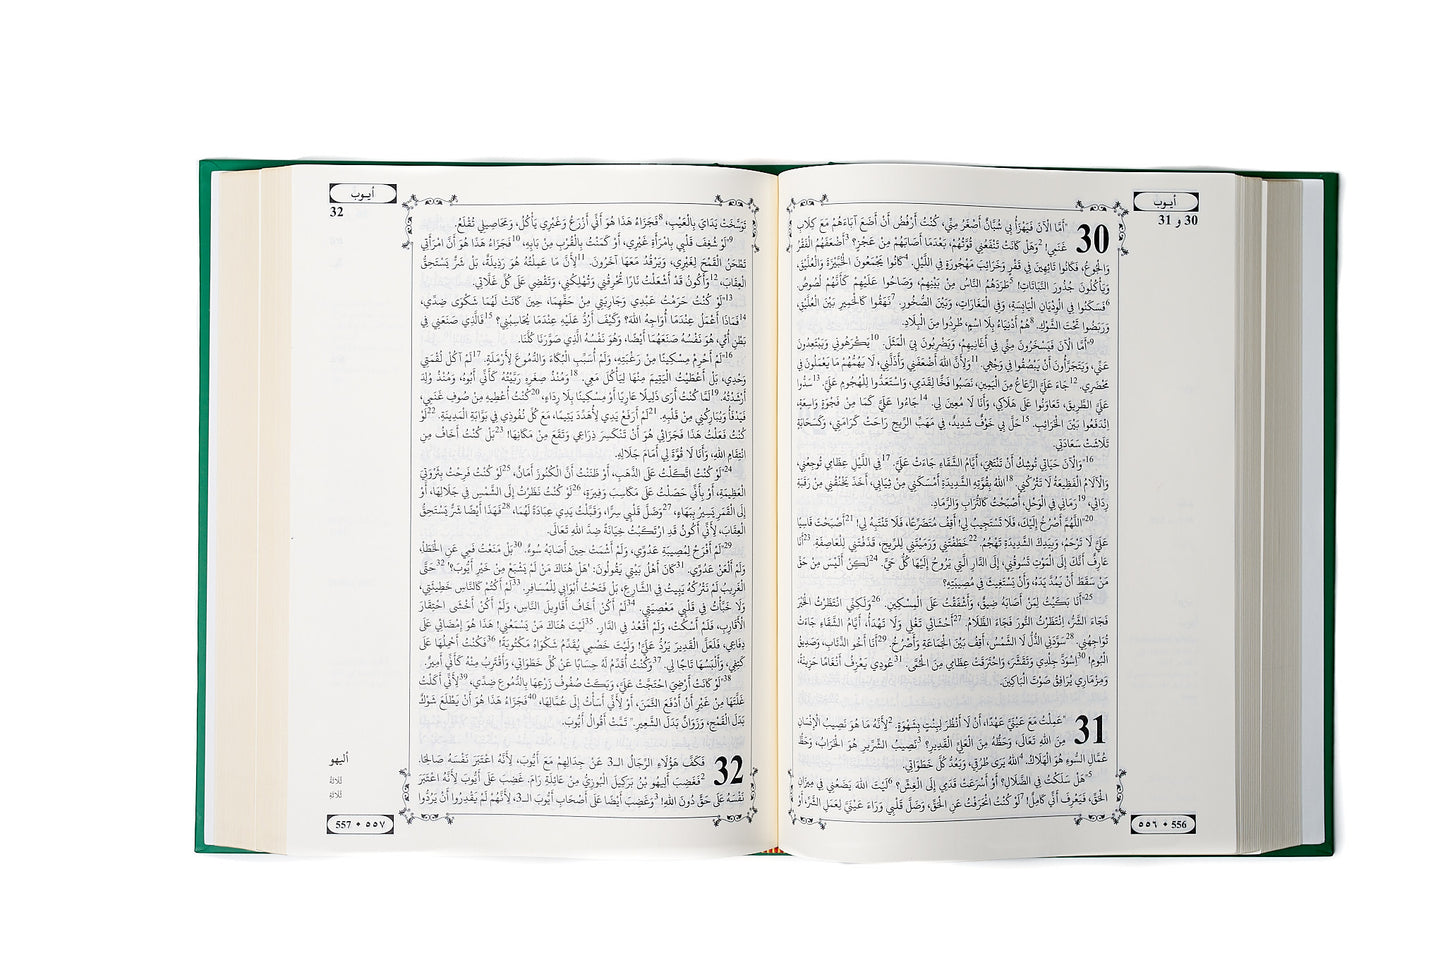 أيوب
30 و 31
30 "أَمَّا الْآنَ فَيَهْزَأُ بِي شُبَّانٌ أَصْغَرُ مِنِّي، كُنْتُ أَرْفُضُ أَنْ أَضَعَ آبَاءَهُمْ مَعَ كِلَابِ
غَنَمِي! 2وَهَلْ كَانَتْ تَنْفَعُنِي قُوَّتُهُمْ، بَعْدَمَا أَصَابَهُمْ مِنْ عَجْزٍ؟ 3أَضْعَفَهُمُ الْفَقْرُ
وَالْجُوعُ، فَكَانُوا تَائِهِينَ فِي قَفْرٍ وَخَرَائِبَ مَهْجُورَةٍ فِي اللَّيْلِ. 4كَانُوا يَجْمَعُونَ الْخُبَّيْزَةَ وَالْعُلَّيْقَ،
وَيَأْكُلُونَ جُذُورَ النَّبَاتَاتِ! 5طَرَدَهُمُ النَّاسُ مِنْ بَيْنِهِمْ، وَصَاحُوا عَلَيْهِمْ كَأَنَّهُمْ لُصُوصٌ.
6فَسَكَنُوا فِي الْوِدْيَانِ الْيَابِسَةِ، وَفِي الْمَغَارَاتِ، وَبَيْنَ الصُّخُورِ. 7نَهَقُوا كَالْحَمِيرِ بَيْنَ الْعُلَّيْقِ،
وَرَبَضُوا تَحْتَ الشَّوْكِ. 8هُمْ أَدْنِيَاءُ بِلَا اسْمٍ، طُرِدُوا مِنَ الْبِلَادِ.
9"أَمَّا الْآنَ فَيَسْخَرُونَ مِنِّي فِي أَغَانِيهِمْ، وَيَضْرِبُونَ بِيَ الْمَثَلَ. 10يَكْرَهُونِي وَيَبْتَعِدُونَ
عَنِّي، وَيَتَجَرَّأُونَ أَنْ يَبْصُقُوا فِي وَجْهِي. 11وَلِأَنَّ اللهَ أَضْعَفَنِي وَأَذَلَّنِي، لَا يَهُمُّهُمْ مَا يَعْمَلُونَ فِي
مَحْضَرِي. 12جَاءَ عَلَيَّ الرُّعَاعُ مِنَ الْيَمِينِ، نَصَبُوا فَخًّا لِقَدَمِي، وَاسْتَعَدُّوا لِلْهُجُومِ عَلَيَّ. 13سَدُّوا
عَلَيَّ الطَّرِيقَ، تَعَاوَنُوا عَلَى هَلَاكِي، وَأَنَا لَا مُعِينَ لِي. 14جَاءُوا عَلَيَّ كَمَا مِنْ فَجْوَةٍ وَاسِعَةٍ،
اِنْدَفَعُوا بَيْنَ الْخَرَائِبِ. 15حَلَّ بِي خَوْفٌ شَدِيدٌ، فِي مَهَبِّ الرِّيحِ رَاحَتْ كَرَامَتِي، وَكَسَحَابَةٍ
تَلَاشَتْ سَعَادَتِي.
16"وَالْآنَ حَيَاتِي تُوشِكُ أَنْ تَنْتَهِيَ، أَيَّامُ الشَّقَاءِ جَاءَتْ عَلَيَّ. 17فِي اللَّيْلِ عِظَامِي تُوجِعُنِي،
وَالْآلَامُ الْفَظِيعَةُ لَا تَتْرُكُنِي. 18اللهُ بِقُوَّتِهِ الشَّدِيدَةِ أَمْسَكَنِي مِنْ ثِيَابِي، أَخَذَ يَخْنُقُنِي مِنْ رَقَبَةِ
رِدَائِي، 19رَمَانِي فِي الْوَحْلِ، أَصْبَحْتُ كَالتُّرَابِ وَالرَّمَادِ.
20"اللَّهُمَّ أَصْرُخُ إِلَيْكَ، فَلَا تَسْتَجِيبُ لِي! أَقِفُ مُتَضَرِّعًا، فَلَا تَنْتَبِهُ لِي! 21أَصْبَحْتَ قَاسِيًا
عَلَيَّ لَا تَرْحَمُ، وَبِيَدِكَ الشَّدِيدَةِ تَهْجُمُ. 22خَطَفْتَنِي وَرَمَيْتَنِي لِلرِّيحِ، قَذَفْتَنِي لِلْعَاصِفَةِ. 23أَنَا
عَارِفٌ أَنَّكَ إِلَى الْمَوْتِ تَسُوقُنِي، إِلَى الدَّارِ الَّتِي يَرُوحُ إِلَيْهَا كُلُّ حَيٍّ. 24لَكِنْ أَلَيْسَ مِنْ حَقِّ
مَنْ سَقَطَ أَنْ يَمُدَّ يَدَهُ، وَأَنْ يَسْتَغِيثَ فِي مُصِيبَتِهِ؟
25"أَنَا بَكَيْتُ لِمَنْ أَصَابَهُ ضِيقٌ، وَأَشْفَقْتُ عَلَى الْمِسْكِينِ. 26وَلَكِنِّي انْتَظَرْتُ الْخَيْرَ
فَجَاءَ الشَّرُّ، انْتَظَرْتُ النُّورَ فَجَاءَ الظَّلَامُ. 27أَحْشَائِي تَغْلِي وَلَا تَهْدَأُ، أَيَّامُ الشَّقَاءِ جَاءَتْ
تُوَاجِهُنِي. 28سَوَّدَنِي الذُّلُّ لَا الشَّمْسُ، أَقِفُ بَيْنَ الْجَمَاعَةِ وَأَصْرُخُ. 29أَنَا أَخُو الذِّئَابِ، وَصَدِيقُ
الْبُومِ! 30اِسْوَدَّ جِلْدِي وَتَقَشَّرَ، وَاحْتَرَقَتْ عِظَامِي مِنَ الْحُمَّى. 31عُودِي يَعْزِفُ أَنْغَامًا حَزِينَةً،
وَمِزْمَارِي يُرَافِقُ صَوْتَ الْبَاكِينَ.
31 "عَمِلْتُ مَعَ عَيْنَيَّ عَهْدًا، أَنْ لَا أَنْظُرَ لِبِنْتٍ بِشَهْوَةٍ. 2لِأَنَّهُ مَا هُوَ نَصِيبُ الْإِنْسَانِ
مِنَ اللهِ تَعَالَى، وَحَظُّهُ مِنَ الْعَلِيِّ الْقَدِيرِ؟ 3نَصِيبُ الشِّرِّيرِ هُوَ الْخَرَابُ، وَحَظُّ
عُمَّالِ السُّوءِ هُوَ الْهَلَاكُ. 4اللهُ يَرَى طُرُقِي، وَيَعُدُّ كُلَّ خَطَوَاتِي.
5"هَلْ سَلَكْتُ فِي الضَّلَالِ؟ أَوْ أَسْرَعَتْ قَدَمِي إِلَى الْغِشِّ؟ 6لَيْتَ اللهَ يَضَعُنِي فِي مِيزَانِ
الْحَقِّ، فَيَعْرِفَ أَنِّي كَامِلٌ! 7لَوْ كُنْتُ انْحَرَفْتُ عَنِ الْحَقِّ، وَضَلَّ قَلْبِي وَرَاءَ عَيْنَيَّ لِعَمَلِ الشَّرِّ، أَوْ
556 • ٥٥٦
أيوب
32
تَوَسَّخَتْ يَدَايَ بِالْعَيْبِ، 8فَجَزَاءُ هَذَا هُوَ أَنِّي أَزْرَعُ وَغَيْرِي يَأْكُلُ، وَمَحَاصِيلِي تُقْلَعُ.
9"لَوْ شُغِفَ قَلْبِي بِامْرَأَةِ غَيْرِي، أَوْ كَمَنْتُ بِالْقُرْبِ مِنْ بَابِهِ، 10فَجَزَاءُ هَذَا هُوَ أَنَّ امْرَأَتِي
تَطْحَنُ الْقَمْحَ لِغَيْرِي، وَيَرْقُدُ مَعَهَا آخَرُونَ. 11لِأَنَّ مَا عَمِلْتُهُ هُوَ رَذِيلَةٌ، بَلْ شَرٌّ يَسْتَحِقُّ
الْعِقَابَ، 12وَأَكُونُ قَدْ أَشْعَلْتُ نَارًا تُحْرِقُنِي وَتُهْلِكُنِي، وَتَقْضِي عَلَى كُلِّ غَلَّاتِي.
13"لَوْ كُنْتُ حَرَمْتُ عَبْدِي وَجَارِيَتِي مِنْ حَقِّهِمَا، حِينَ كَانَتْ لَهُمَا شَكْوَى ضِدِّي،
14فَمَاذَا أَعْمَلُ عِنْدَمَا أُوَاجِهُ اللهَ؟ وَكَيْفَ أَرُدُّ عَلَيْهِ عِنْدَمَا يُحَاسِبُنِي؟ 15فَالَّذِي صَنَعَنِي فِي
بَطْنِ أُمِّي، هُوَ نَفْسُهُ صَنَعَهُمَا أَيْضًا، وَهُوَ نَفْسُهُ الَّذِي صَوَّرَنَا كُلَّنَا.
16"لَمْ أَحْرِمْ مِسْكِينًا مِنْ رَغْبَتِهِ، وَلَمْ أُسَبِّبِ الْبُكَاءَ وَالدُّمُوعَ لِأَرْمَلَةٍ. 17لَمْ آكُلْ لُقْمَتِي
وَحْدِي، بَلْ أَعْطَيْتُ الْيَتِيمَ مِنْهَا لِيَأْكُلَ مَعِي. 18وَمُنْذُ صِغَرِهِ رَبَّيْتُهُ كَأَنِّي أَبُوهُ، وَمُنْذُ وُلِدَ
أَرْشَدْتُهُ. 19لَمَّا كُنْتُ أَرَى ذَلِيلًا عَارِيًا أَوْ مِسْكِينًا بِلَا رِدَاءٍ، 20كُنْتُ أُعْطِيهِ مِنْ صُوفِ غَنَمِي،
فَيَدْفَأُ وَيُبَارِكُنِي مِنْ قَلْبِهِ. 21لَمْ أَرْفَعْ يَدِي لِأُهَدِّدَ يَتِيمًا، مَعَ كُلِّ نُفُوذِي فِي بَوَّابَةِ الْمَدِينَةِ. 22لَوْ
كُنْتُ فَعَلْتُ هَذَا فَجَزَائِي هُوَ أَنْ تَنْكَسِرَ ذِرَاعِي وَتَقَعَ مِنْ مَكَانِهَا! 23بَلْ كُنْتُ أَخَافُ مِنِ
انْتِقَامِ اللهِ، وَأَنَا لَا قُوَّةَ لِي أَمَامَ جَلَالِهِ.
24"لَوْ كُنْتُ اتَّكَلْتُ عَلَى الذَّهَبِ، أَوْ ظَنَنْتُ أَنَّ الْكُنُوزَ أَمَانٌ، 25لَوْ كُنْتُ فَرِحْتُ بِثَرْوَتِيَ
الْعَظِيمَةِ، أَوْ بِأَنِّي حَصَلْتُ عَلَى مَكَاسِبَ وَفِيرَةٍ، 26لَوْ كُنْتُ نَظَرْتُ إِلَى الشَّمْسِ فِي جَلَالِهَا، أَوْ
إِلَى الْقَمَرِ يَسِيرُ بِبَهَاءٍ، 27وَضَلَّ قَلْبِي سِرًّا، وَقَبَّلْتُ يَدِي عِبَادَةً لَهُمَا، 28فَهَذَا أَيْضًا شَرٌّ يَسْتَحِقُّ
الْعِقَابَ، لِأَنِّي أَكُونُ قَدِ ارْتَكَبْتُ خِيَانَةً ضِدَّ اللهِ تَعَالَى.
29"لَمْ أَفْرَحْ لِمُصِيبَةِ عَدُوِّي، وَلَمْ أَشْمَتْ حِينَ أَصَابَهُ سُوءٌ. 30بَلْ مَنَعْتُ فَمِي عَنِ الْخَطَإِ،
وَلَمْ أَلْعَنْ عَدُوِّي. 31كَانَ أَهْلُ بَيْتِي يَقُولُونَ: 'هَلْ هُنَاكَ مَنْ لَمْ يَشْبَعْ مِنْ خَيْرِ أَيُّوبَ؟' 32حَتَّى
الْغَرِيبُ لَمْ نَتْرُكْهُ يَبِيتُ فِي الشَّارِعِ، بَلْ فَتَحْتُ أَبْوَابِي لِلْمُسَافِرِ. 33لَمْ أَكْتُمْ كَالنَّاسِ خَطِيئَتِي،
وَلَا خَبَّأْتُ فِي قَلْبِي مَعْصِيَتِي. 34لَمْ أَكُنْ أَخَافُ أَقَاوِيلَ النَّاسِ، وَلَمْ أَكُنْ أَخْشَى احْتِقَارَ
الْأَقَارِبِ، فَلَمْ أَسْكُتْ، وَلَمْ أَقْعُدْ فِي الدَّارِ. 35لَيْتَ هُنَاكَ مَنْ يَسْمَعُنِي! هَذَا هُوَ إِمْضَائِي عَلَى
دِفَاعِي، فَلَعَلَّ الْقَدِيرَ يَرُدُّ عَلَيَّ! وَلَيْتَ خَصْمِي يُقَدِّمُ شَكْوَاهُ مَكْتُوبَةً! 36فَكُنْتُ أَحْمِلُهَا عَلَى
كَتِفِي، وَأَلْبَسُهَا تَاجًا لِي. 37وَكُنْتُ أُقَدِّمُ لَهُ حِسَابًا عَنْ كُلِّ خَطَوَاتِي، وَأَقْتَرِبُ مِنْهُ كَأَنِّي أَمِيرٌ.
38"لَوْ كَانَتْ أَرْضِيَ احْتَجَّتْ عَلَيَّ، وَبَكَتْ صُفُوفُ زَرْعِهَا بِالدُّمُوعِ ضِدِّي، 39لِأَنِّي أَكَلْتُ
غَلَّتَهَا مِنْ غَيْرِ أَنْ أَدْفَعَ الثَّمَنَ، أَوْ لِأَنِّي أَسَأْتُ إِلَى عُمَّالِهَا، 40فَجَزَاءُ هَذَا هُوَ أَنْ يَطْلَعَ شَوْكٌ
بَدَلَ الْقَمْحِ، وَزَوَانٌ بَدَلَ الشَّعِيرِ." تَمَّتْ أَقْوَالُ أَيُّوبَ.
أليهو
32 فَكَفَّ هَؤُلَاءِ الرِّجَالُ الـ3 عَنْ جِدَالِهِمْ مَعَ أَيُّوبَ، لِأَنَّهُ اعْتَبَرَ نَفْسَهُ صَالِحًا.
ثلاثة
2فَغَضِبَ أَلِيهُو بْنُ بَرَكِيلَ الْبُوزِيُّ مِنْ عَائِلَةِ رَامَ. غَضِبَ عَلَى أَيُّوبَ لِأَنَّهُ اعْتَبَرَ
ثلاثة
نَفْسَهُ عَلَى حَقٍّ دُونَ اللهِ! 3وَغَضِبَ أَيْضًا عَلَى أَصْحَابِ أَيُّوبَ الـ3، لِأَنَّهُمْ لَمْ يَقْدِرُوا أَنْ يَرُدُّوا
557 • ٥٥٧